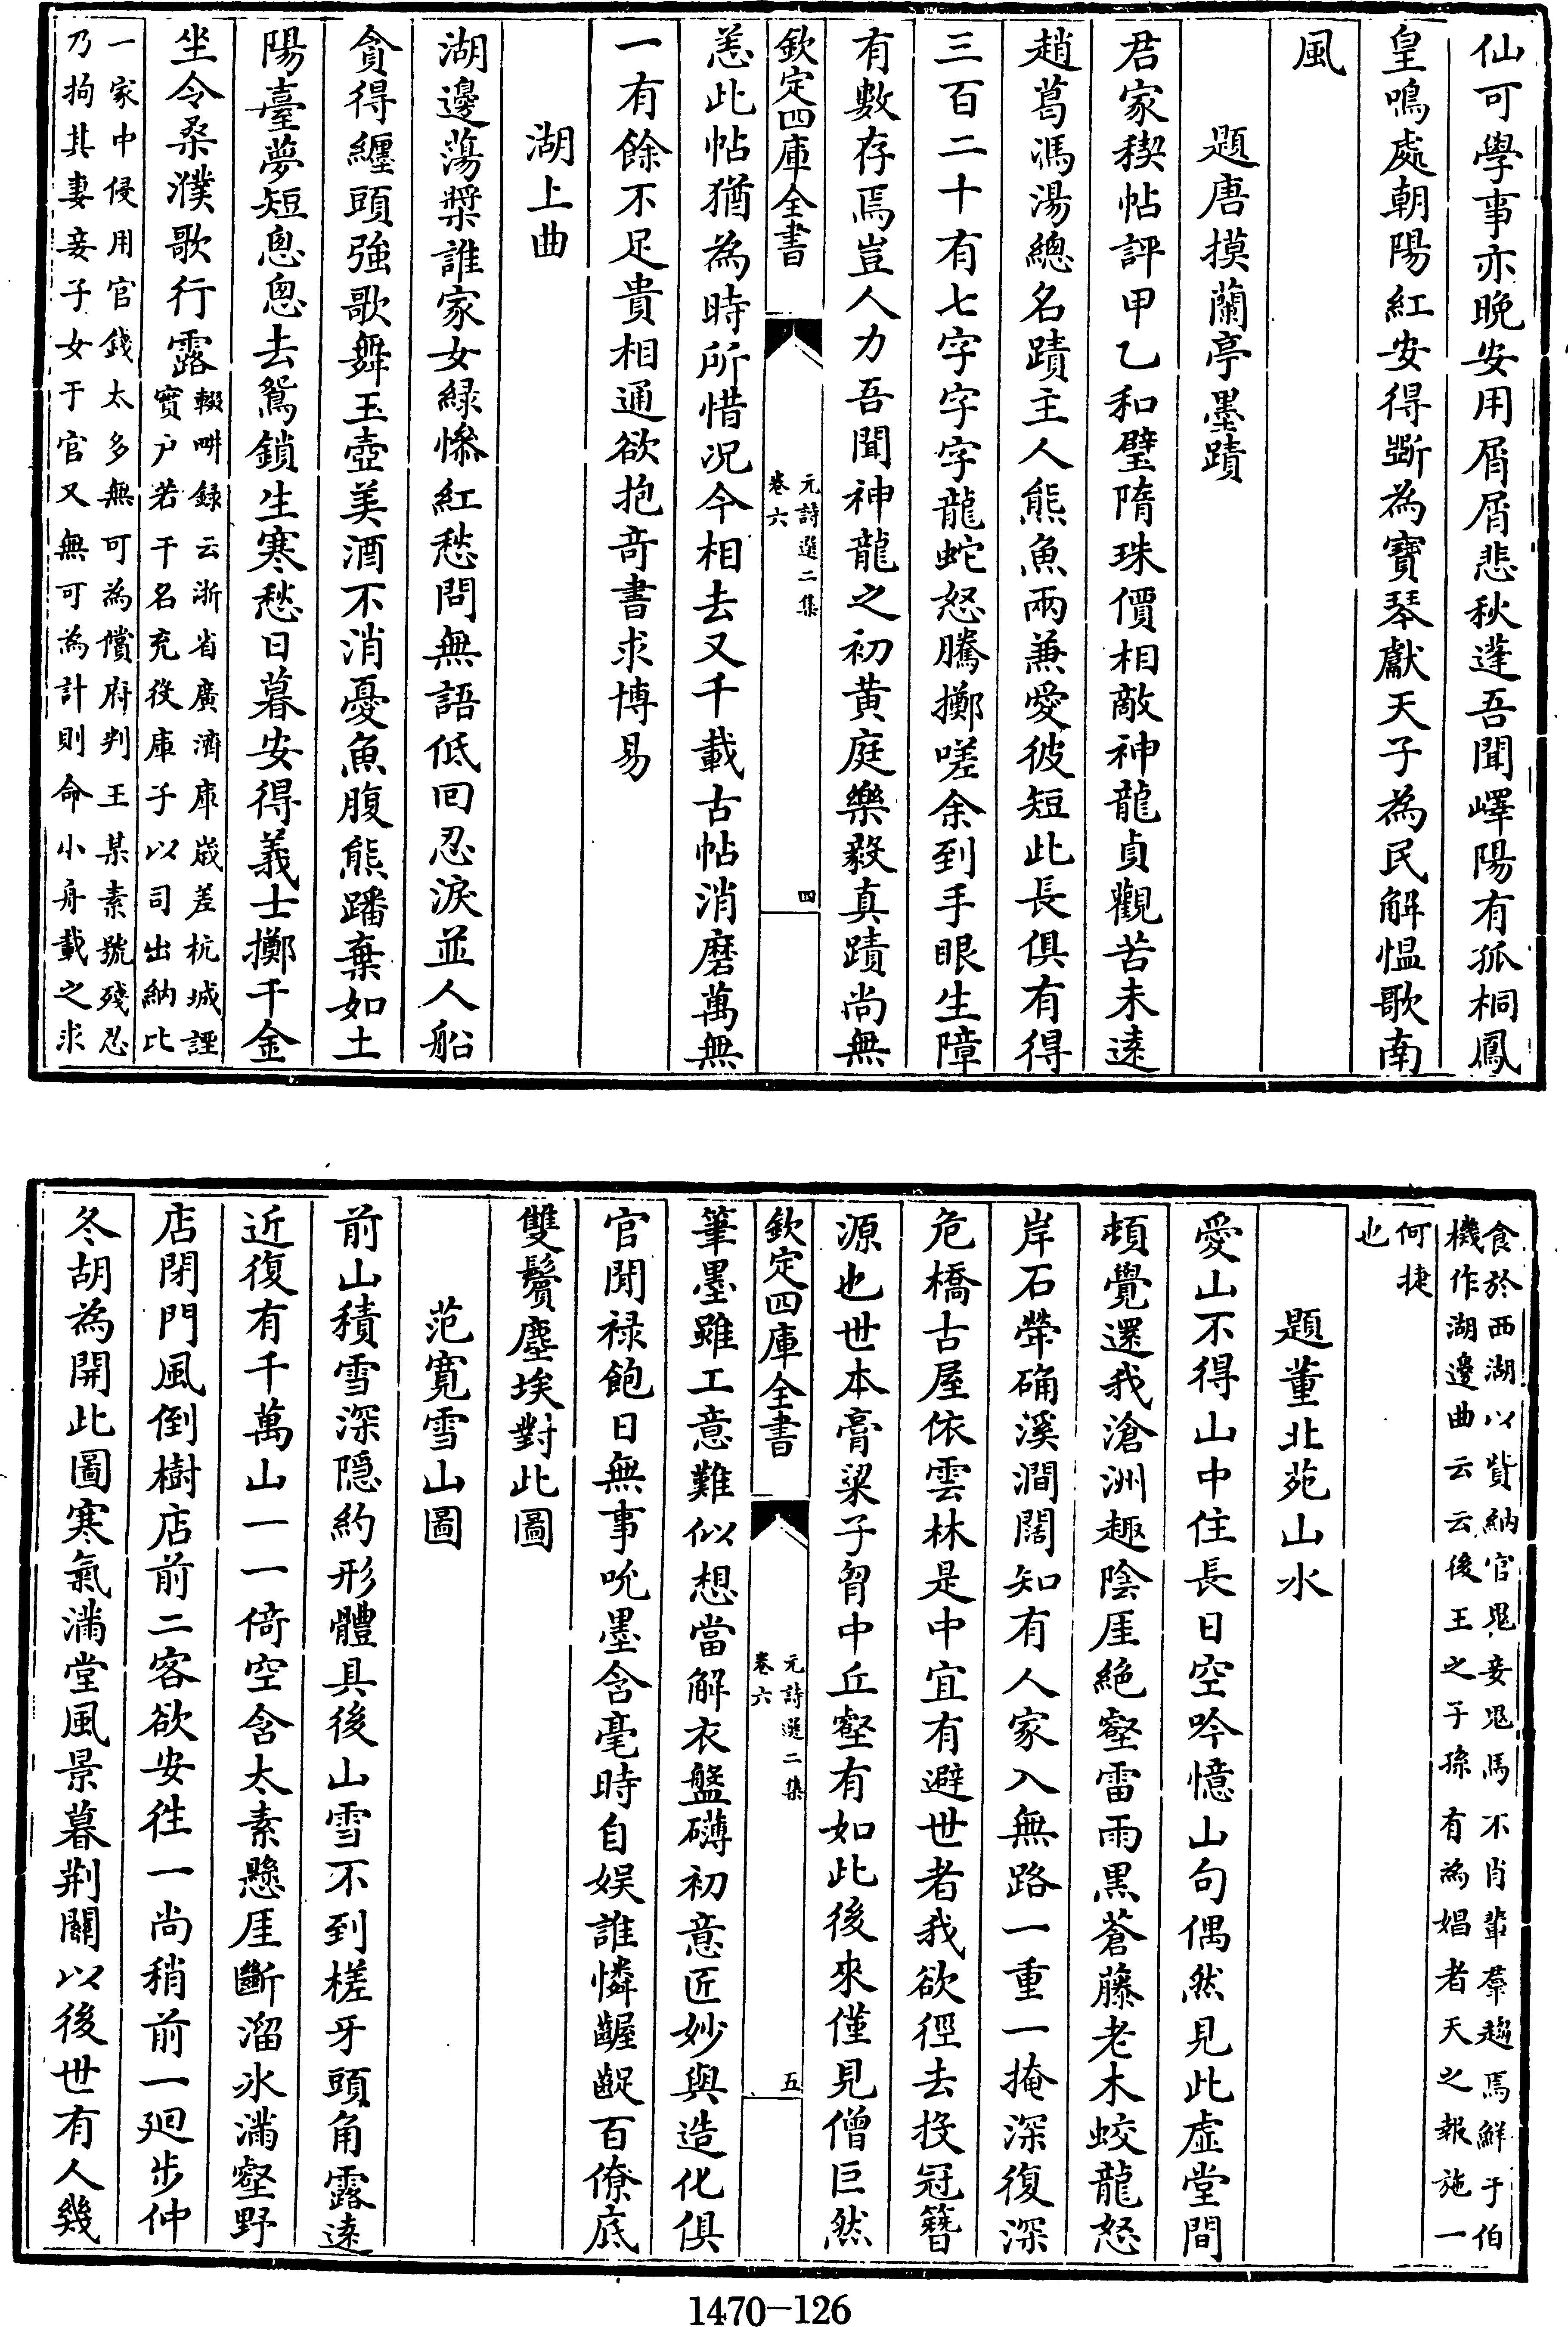 仙可學事亦晚安用屑屑悲秋蓬吾聞嶧陽有孤桐鳳
皇鳴處朝陽紅安得斲為寶琴獻天子為民解愠歌南
風
題唐摸蘭亭墨蹟
君家稧帖評甲乙和璧隋珠價相敵神龍貞觀苦未逺
趙葛馮湯總名蹟主人熊魚兩兼愛彼短此長俱有得
三百二十有七字字字龍蛇怒騰擲嗟余到手眼生障
有數存焉豈人力吾聞神龍之初黄庭樂毅真蹟尚無
欽定四庫全書
元詩選二集
卷六
四
恙此帖猶為時所惜况今相去又千載古帖消磨萬無
一有餘不足貴相通欲抱竒書求博易
湖上曲
湖邊蕩槳誰家女緑慘紅愁問無語低回忍淚並人船
貪得纏頭強歌舞玉壺美酒不消憂魚腹熊蹯棄如土
陽臺夢短悤悤去鴛鎖生寒愁日暮安得義士擲千金
坐令桑濮歌行露
輟畊録云浙省廣濟庫嵗差杭城誣
實户若干名充役庫子以司出納比
一家中侵用官錢太多無可為償府判王某素號殘忍
乃拘其妻妾子女于官又無可為計則命小舟載之求
食於西湖以貲納官鬼妾鬼馬不肖輩羣趨焉鮮于伯
機作湖邊曲云云後王之子孫有為娼者天之報施一
何捷
也
題董北苑山水
愛山不得山中住長日空吟憶山句偶然見此虚堂間
頓覺還我滄洲趣陰厓絶壑雷雨黒蒼藤老木蛟龍怒
岸石犖确溪澗闊知有人家入無路一重一掩深復深
危橋古屋依雲林是中宜有避世者我欲徑去投冠簪
源也世本膏粱子胷中丘壑有如此後來僅見僧巨然
欽定四庫全書
元詩選二集
卷六
五
筆墨雖工意難似想當解衣盤礴初意匠妙與造化俱
官閒禄飽日無事吮墨含毫時自娱誰憐齷齪百僚底
雙鬢塵埃對此圖
范寛雪山圖
前山積雪深隠約形體具後山雪不到槎牙頭角露逺
近復有千萬山一一倚空含太素懸厓斷溜氷滿壑野
店閉門風倒樹店前二客欲安徃一尚稍前一廻步仲
冬胡為開此圖寒氣滿堂風景暮荆關以後世有人幾
1470-126